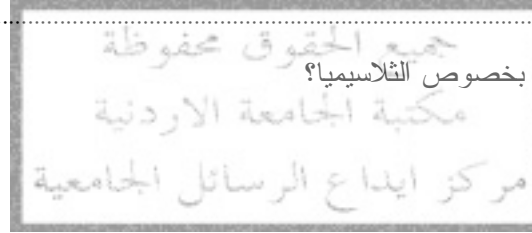 ................................................................
جميع الحقوق محفوظة
بخصوص الثلاسيميا؟
مكتبة الجامعة الاردنية
مركز ايداع الرسائل الجامعية